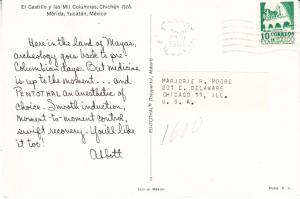 El Castillo y las Mil Columnas, Chichén Itzá.
Mérida, Yucatán, México
Here in the land of Mayas,
archeology goes back to pre-
Columbian days. But medicine
is up to the moment... and
PENTOTHAL an anesthetic of
choice. Smooth induction,
moment-to-moment control,
swift recovery. You'll like
it too!
Abbott
PENTOTHAL® (Thiopental, Abbott)
CORREOS
MARJORIE R. MOORE
201 E. DELAWARE
CHICAGO 11, ILL.
U. S. A.